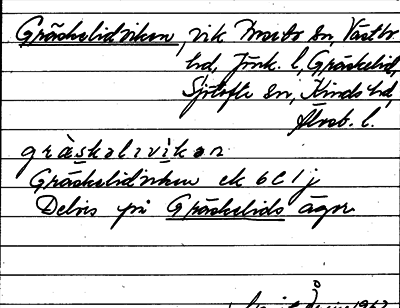 Gräskelidviken, vik Mosebo sn, Västbo
hd, Jönk. l, Gräskelid,
Sjötofta sn, Kinds hd,
Älvsb. l.
gràskəlivikən
Gräskelidviken ek 6C1j
Delvis på Gräskelids ägor
1962